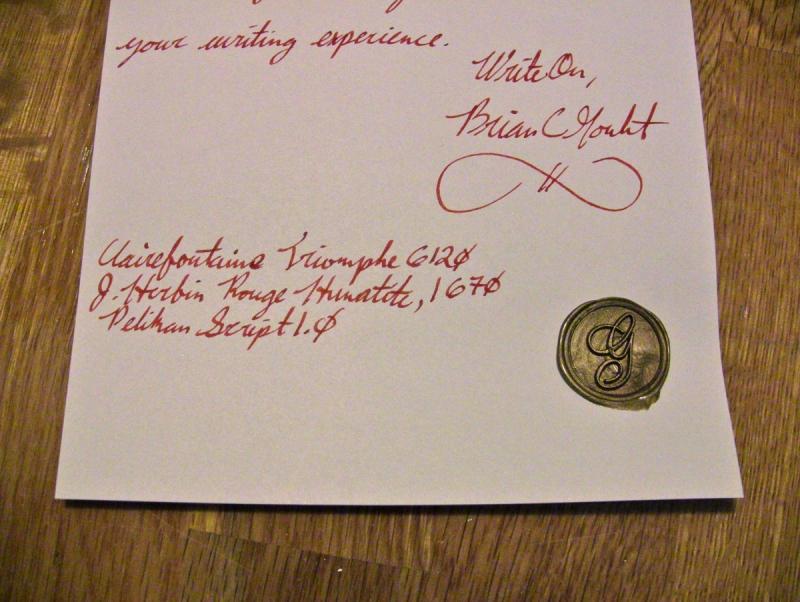 your writing experience.
Write On,
Brian C Goulet
Clairefontaine Triomphe 6120
J. Herbin Rouge Hematite, 1670
Pelikan Script 1.0
G